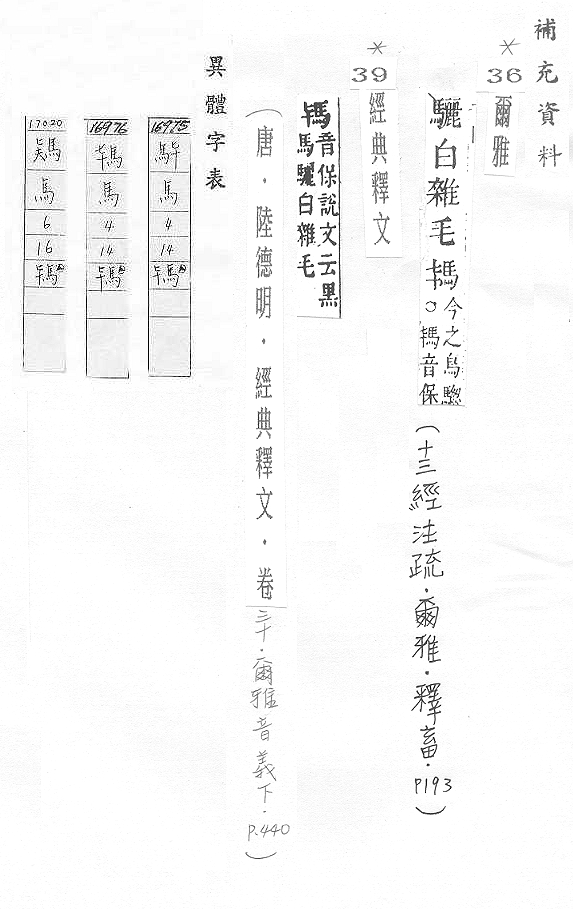 補充資料
＊36 爾雅
驪白雜毛駂
今之烏驄
○駂音保
（十三經注疏．爾雅．釋畜．P193）
＊39 經典釋文
駂音保說文云黑
馬驪白雜毛
（唐．陸德明．經典釋文．卷三十．爾雅音義下．P.440）
異體字表
16975
馬
4
14
駂
16976
駂
馬
4
14
駂
17020
馬
6
16
駂